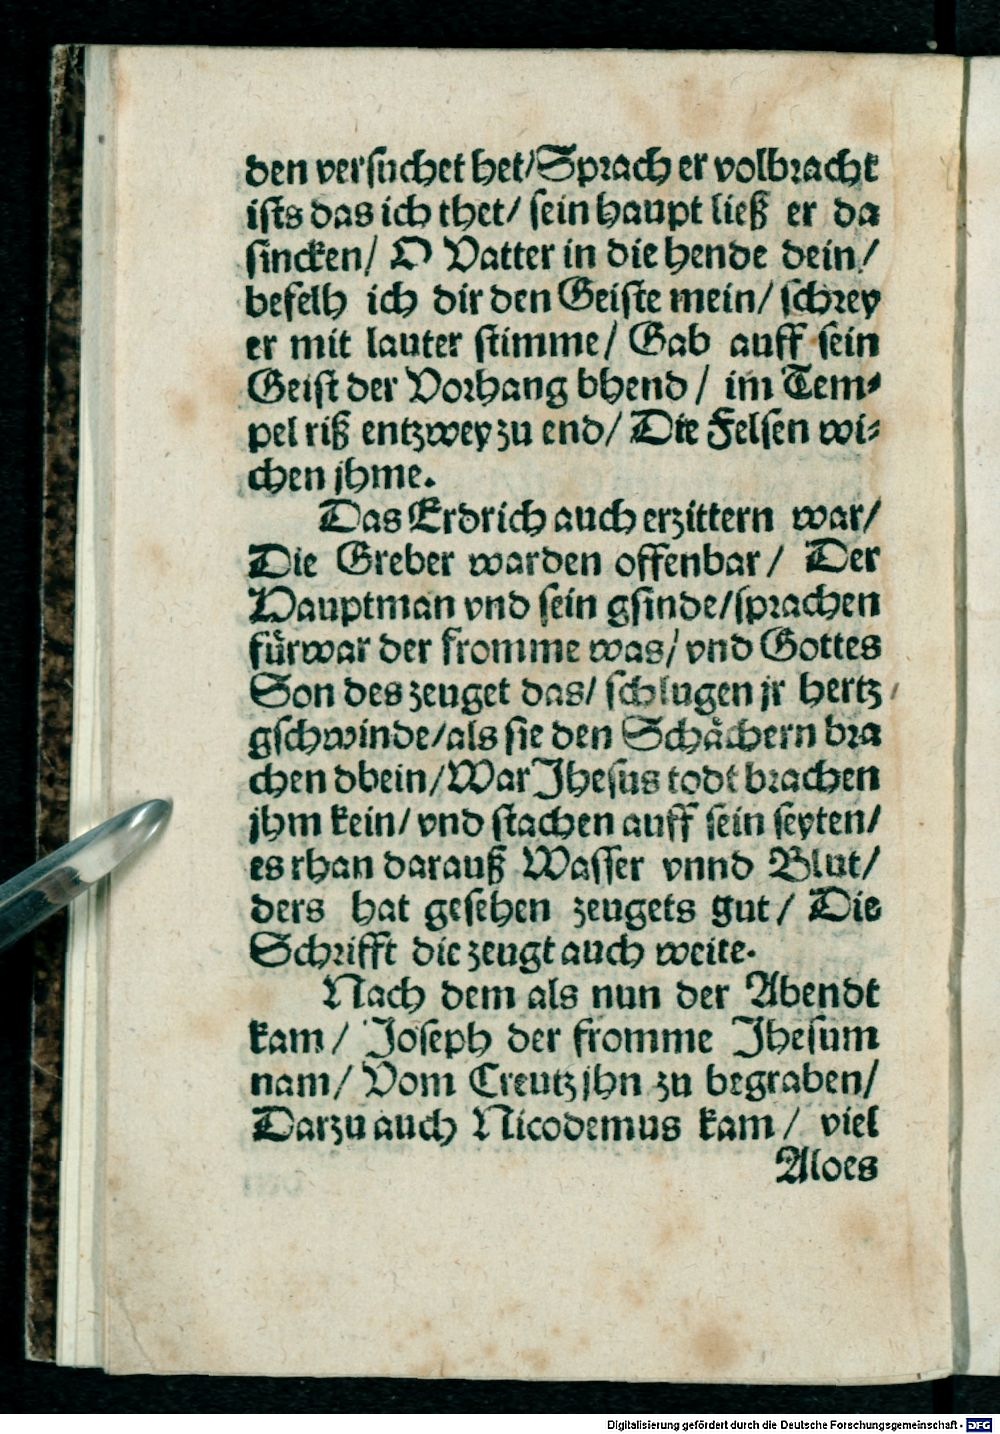 den versuchet het/Sprach er volbracht
ists das ich thet/ sein haupt ließ er da
sincken/ O Vatter in die hende dein/
befelh ich dir den Geiste mein/ schrey
er mit lauter stimme/ Gab auff sein
Geist der Vorhang bhend/ im Tem⸗
pel riß entzwey zu end/ Die Felsen wi⸗
chen jhme.
Das Erdrich auch erzittern war/
Die Greber warden offenbar/ Der
Hauptman vnd sein gsinde/sprachen
fürwar der fromme was/ vnd Gottes
Son des zeuget das/ schlugen jr hertz
gschwinde/als sie den Schächern bra
chen dbein/War Jhesus todt brachen
jhm kein/ vnd stachen auff sein seyten/
es rhan darauß Wasser vnnd Blut/
ders hat gesehen zeugets gut/ Die
Schrifft die zeugt auch weite.
Nach dem als nun der Abendt
kam/ Joseph der fromme Jhesum
nam/ Vom Creutz jhn zu begraben/
Darzu auch Nicodemus kam/ viel
Aloes
Digitalisierung gefördert durch die Deutsche Forschungsgemeinschaft - DFG